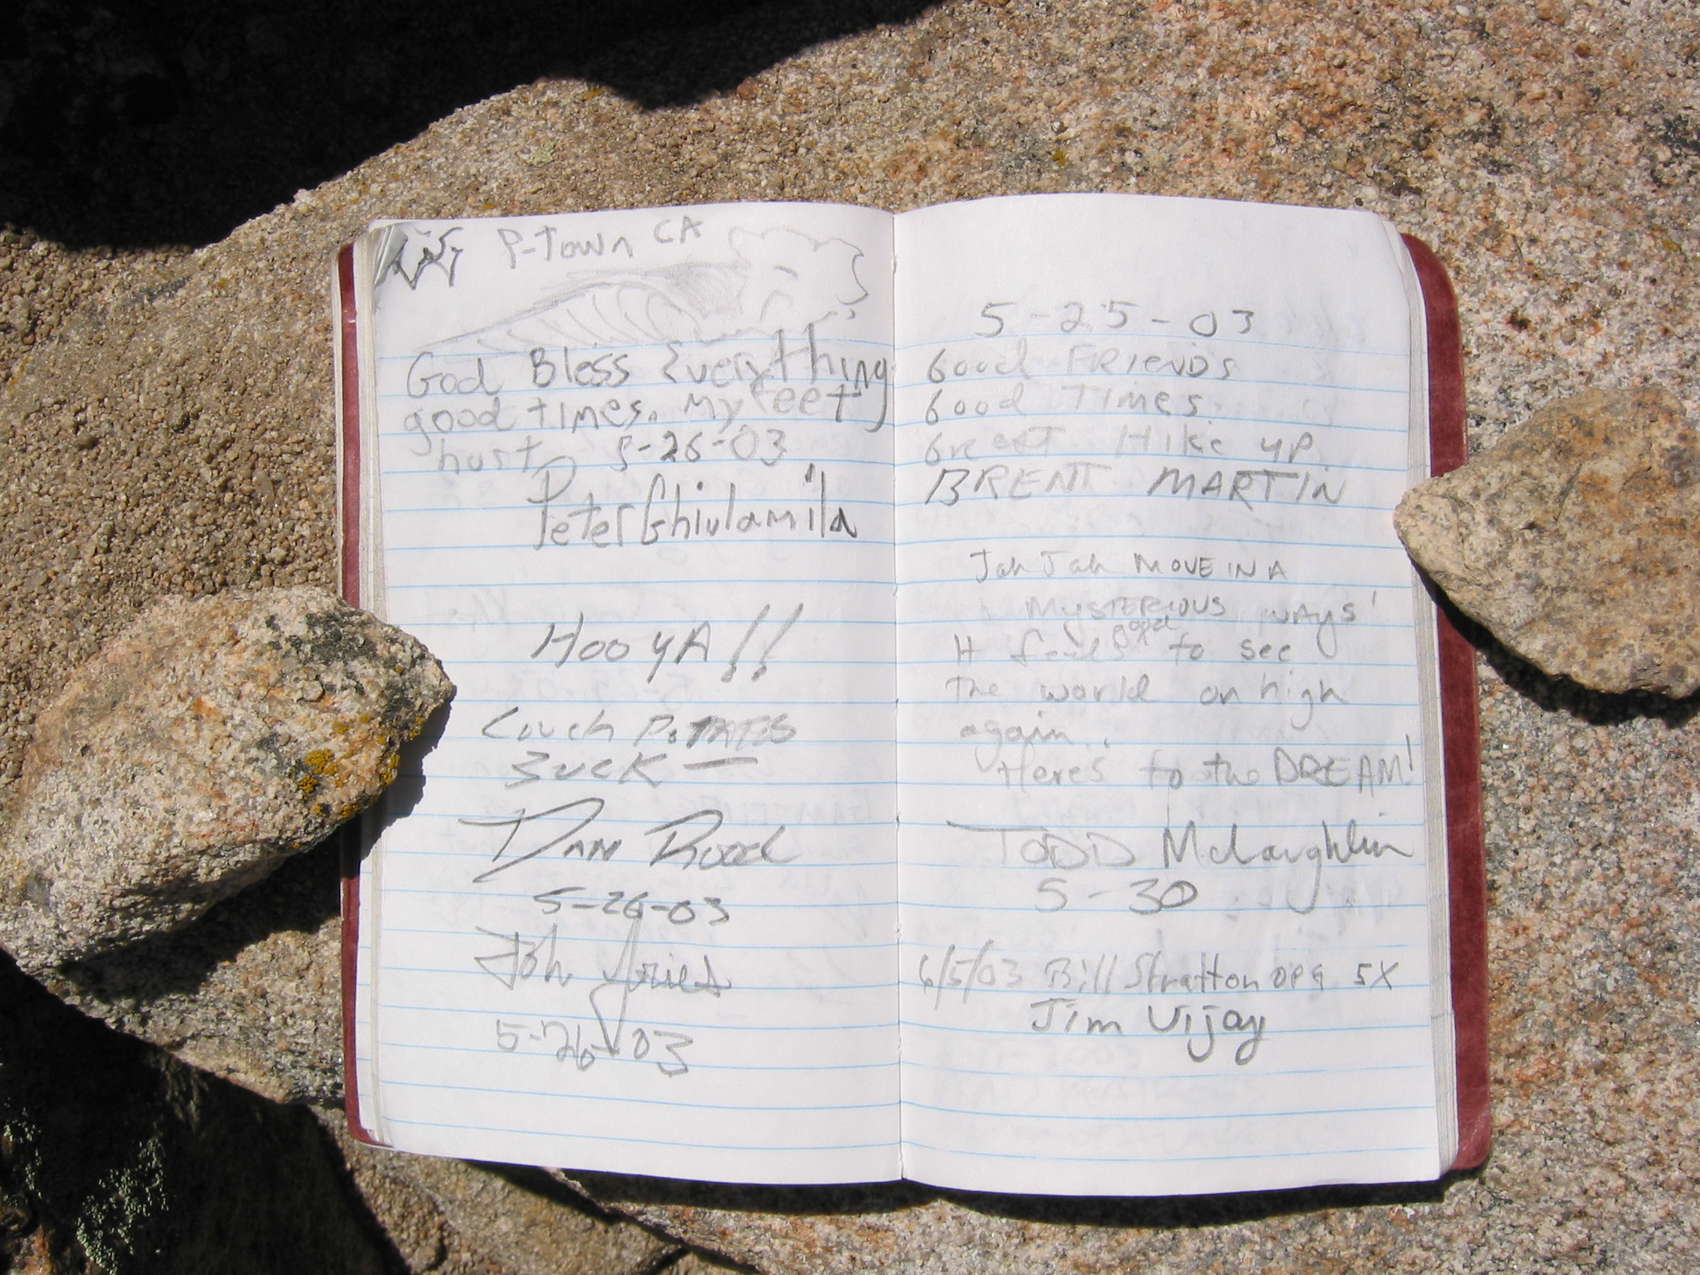 P-Town CA
God Bless Everything
good times. My feet
hurt 5-26-03
Peter Ghiulamila
HOO YA!!
Couch POTATOS
SUCK
DAN Rood
5-26-03
5-26-03
5-25-03
Good FRIENDS
Good Times
Great Hike up
BRENT MARTIN
Jah Jah MOVE IN A
MYSTERIOUS WAYS!
It feels good to see
the world on high
again.
Here's to the DREAM!
TODD McLaughlin
5-30
6/5/03 Bill Stratton OPG 5X
Jim Vijay